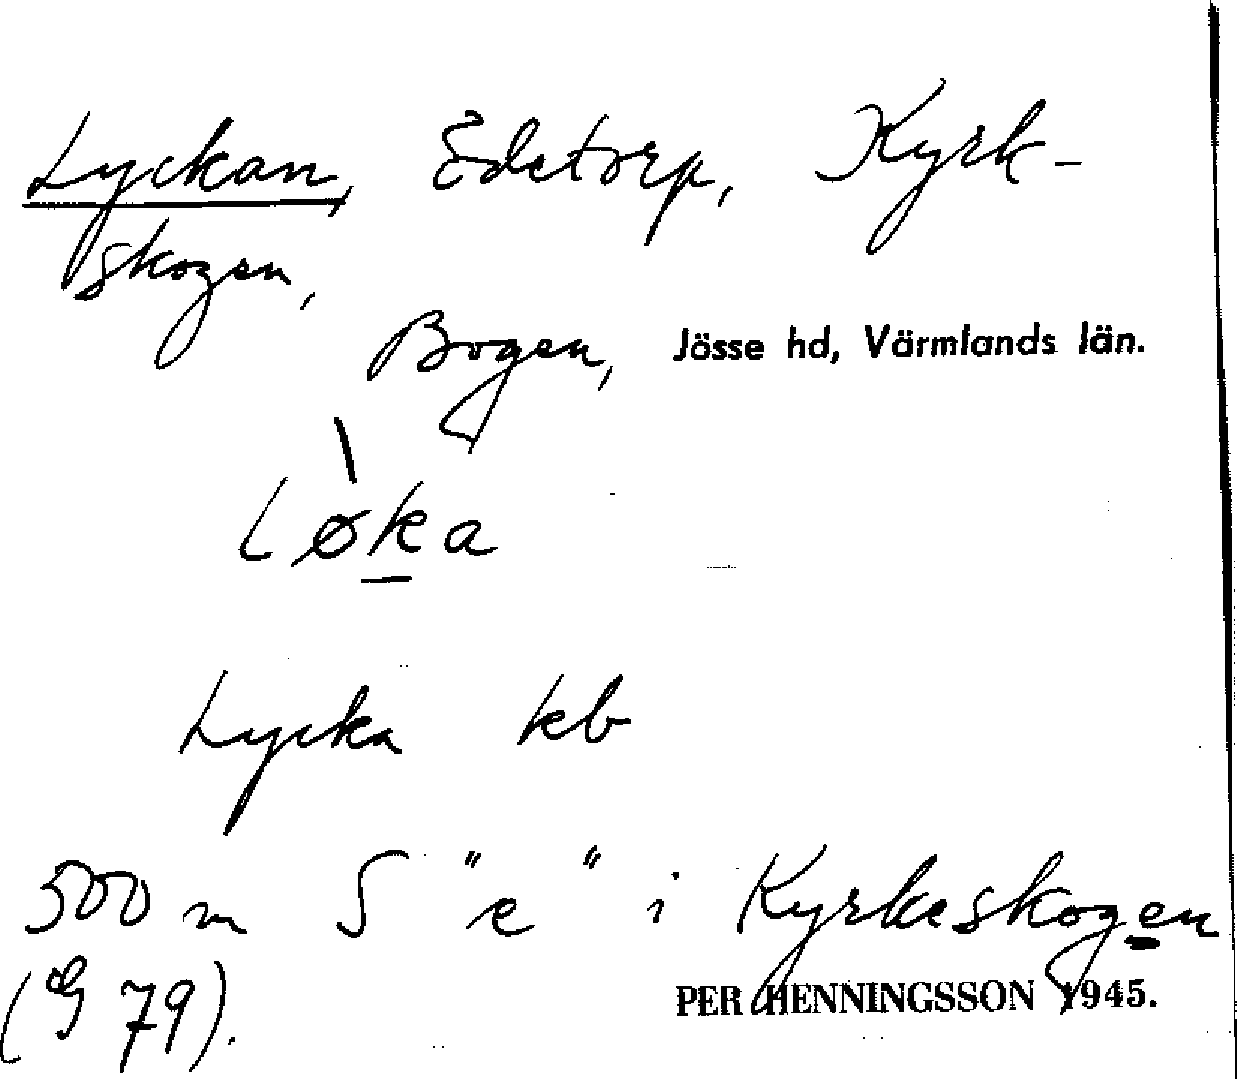 Lyckan, Edetorp, Kyrk-
skogen,
Bogen, Jösse hd, Värmlands län.
løka
Lycka kb
500 m S "e" i Kyrkeskogen
(G 79).
PER HENNINGSSON 1945.